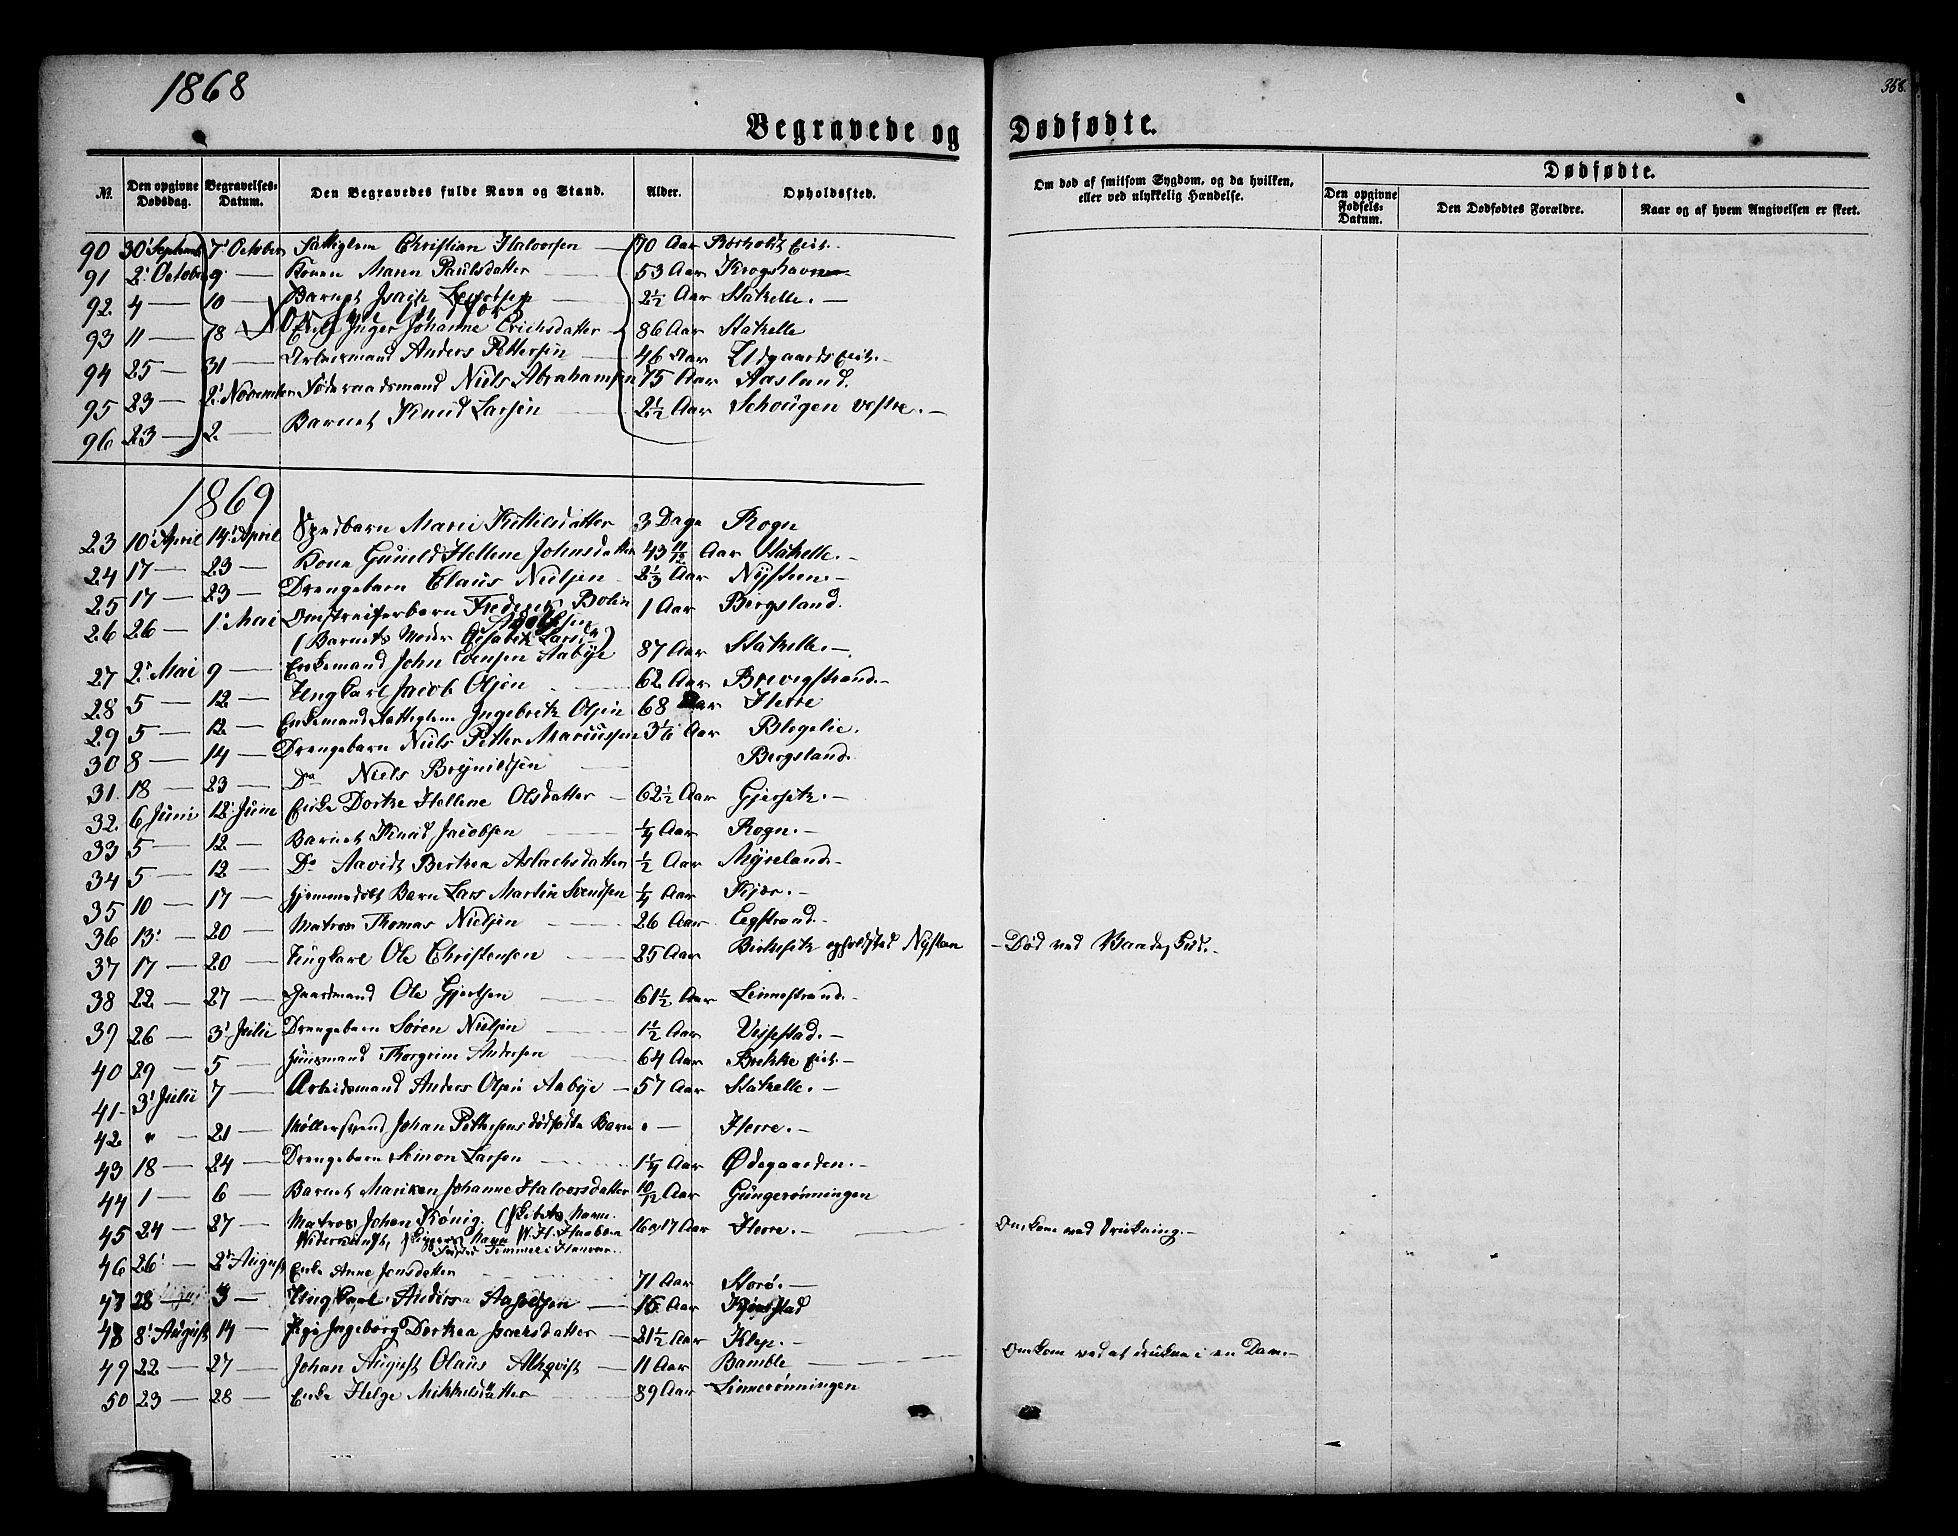 1868
358.
Begravede og Dødfødte.
№.
Den opgivne Dødsdag.
Begravelses-Datum.
Den Begravedes fulde Navn og Stand.
Alder.
Opholdssted.
Om død af smitsom Sygdom, og da hvilken, eller ved ulykkelig Hændelse.
Dødfødte.
Den opgivne Fødsels-Datum.
Den Dødfødtes Forældre.
Naar og af hvem Angivelsen er skeet.
90 30' Septemb 7' October Fattiglem Christian Halvorsen — 70 Aar
91 2' October 9 — Konen Maren Paulsdatter — 53 Aar Krogshavn
92. 4 — 10 — Barnet Isach — 2½ Aar Stathelle. —
93 11 — 18 — Enke Inger Johanne Erichsdatter — 86 Aar Stathelle
94 25 — 31 — Arbeidsmand Anders Pettersen — 46 Aar Udgaards Eie. —
95 23 — 2' November Føderaadsmand Niels Abrahamsen 75 Aar Aasland.
96 23 — 2 — Barnet Knud Larsen 2½ Aar Schougen vestre. —
1869
23 10' April 14' April Spædbarn Maren Kittilsdatter 3 Dage Rogn
24 17 — 23 — Kone Gunild Hellene Johnsdatter 43 11/12 Aar Stathelle. —
25 17 — 23 — Drengebarn Claus Nielsen — 2⅓ Aar Nysteen —
26 26 — 1' Mai Omstreiferbarn Frederik Bolin 1 Aar Bergsland.
(Barnets Moder Larsen)
27 2' Mai 9 — Enkemand John Evensen Aabye 87 Aar Stathelle. —
28 5 — 12 — Ungkarl Jacob Olsen — 62 Aar Brevigstrand —
29 5 — 12 — Enkemand Fattiglem Ingebret Olsen 68 Aar Herre
30 8 — 14 — Drengebarn Niels Petter Mariussen 3⅙ Aar Blegelie.
31. 18 — 23 — Do Niels Brynildsen — Bergsland.
32. 6 Juni 12' Juni Enke Dorthe Hellene Olsdatter — 62½ Aar Gjerseth. —
33 5 — 12 — Barnet Knud Jacobsen — ¼ Aar Rogn. —
34 5 — 12 — Do Aavidt Berthea Aslachsdatter ½ Aar Myreland —
35 10 — 17 — Hjemmedøbt Barn Lars Martin Svendsen ¼ Aar Kjær. —
36 13' — 20 — Matros Thomas Nielsen 26 Aar Eegstrand —
37 17 — 20 — Ungkarl Ole Christensen — 25 Aar Birkeseth opholdsted Nystein — Død ved —
38 22 — 27 — Gaardmand Ole Gjertsen — 61½ Aar Linnestrand —
39 26 — 3' Julii Drengebarn Søren Nielsen — 1½ Aar Vissestad. —
40 29 — 5 — Huusmand Thorgrim Andersen — 64 Aar Brekke Eie. —
41 — 3' Julii 7 — Arbeidsmand Anders Olsen Aabye — 57 Aar Stathelle. —
42. " — 21 — Møllersvend Johan Pettersens dødfødte Barn " — Herre. —
43 18 — 24 — Drengebarn Simon Larsen — 1¼ Aar Ødegaarden. —
44 1 — 6 — Barnet Maren Johanne Halvorsdatter 10/12 Aar Gungerønningen
45 24 — 27 — Matros Johan König. (Skibets Navn 16 a 17 Aar Herre. — Omkom ved Drukning. —
46 26' — 2' August Enke Anne Jensdatter — 71 Aar Storø. —
47 28 — 3 — Ungkarl Anders — 15 Aar
48 8' August 14 — Pige Ingeborg Dorthea Isacksdatter — 21½ Aar Klep. —
49 22 — 27 — Johan August Olaus Almqvist — 11 Aar Bamble — Omkom ved at drukne i en Dam. —
50 23 — 28 — Enke Helge Mikkelsdatter — 89 Aar Linnerønningen